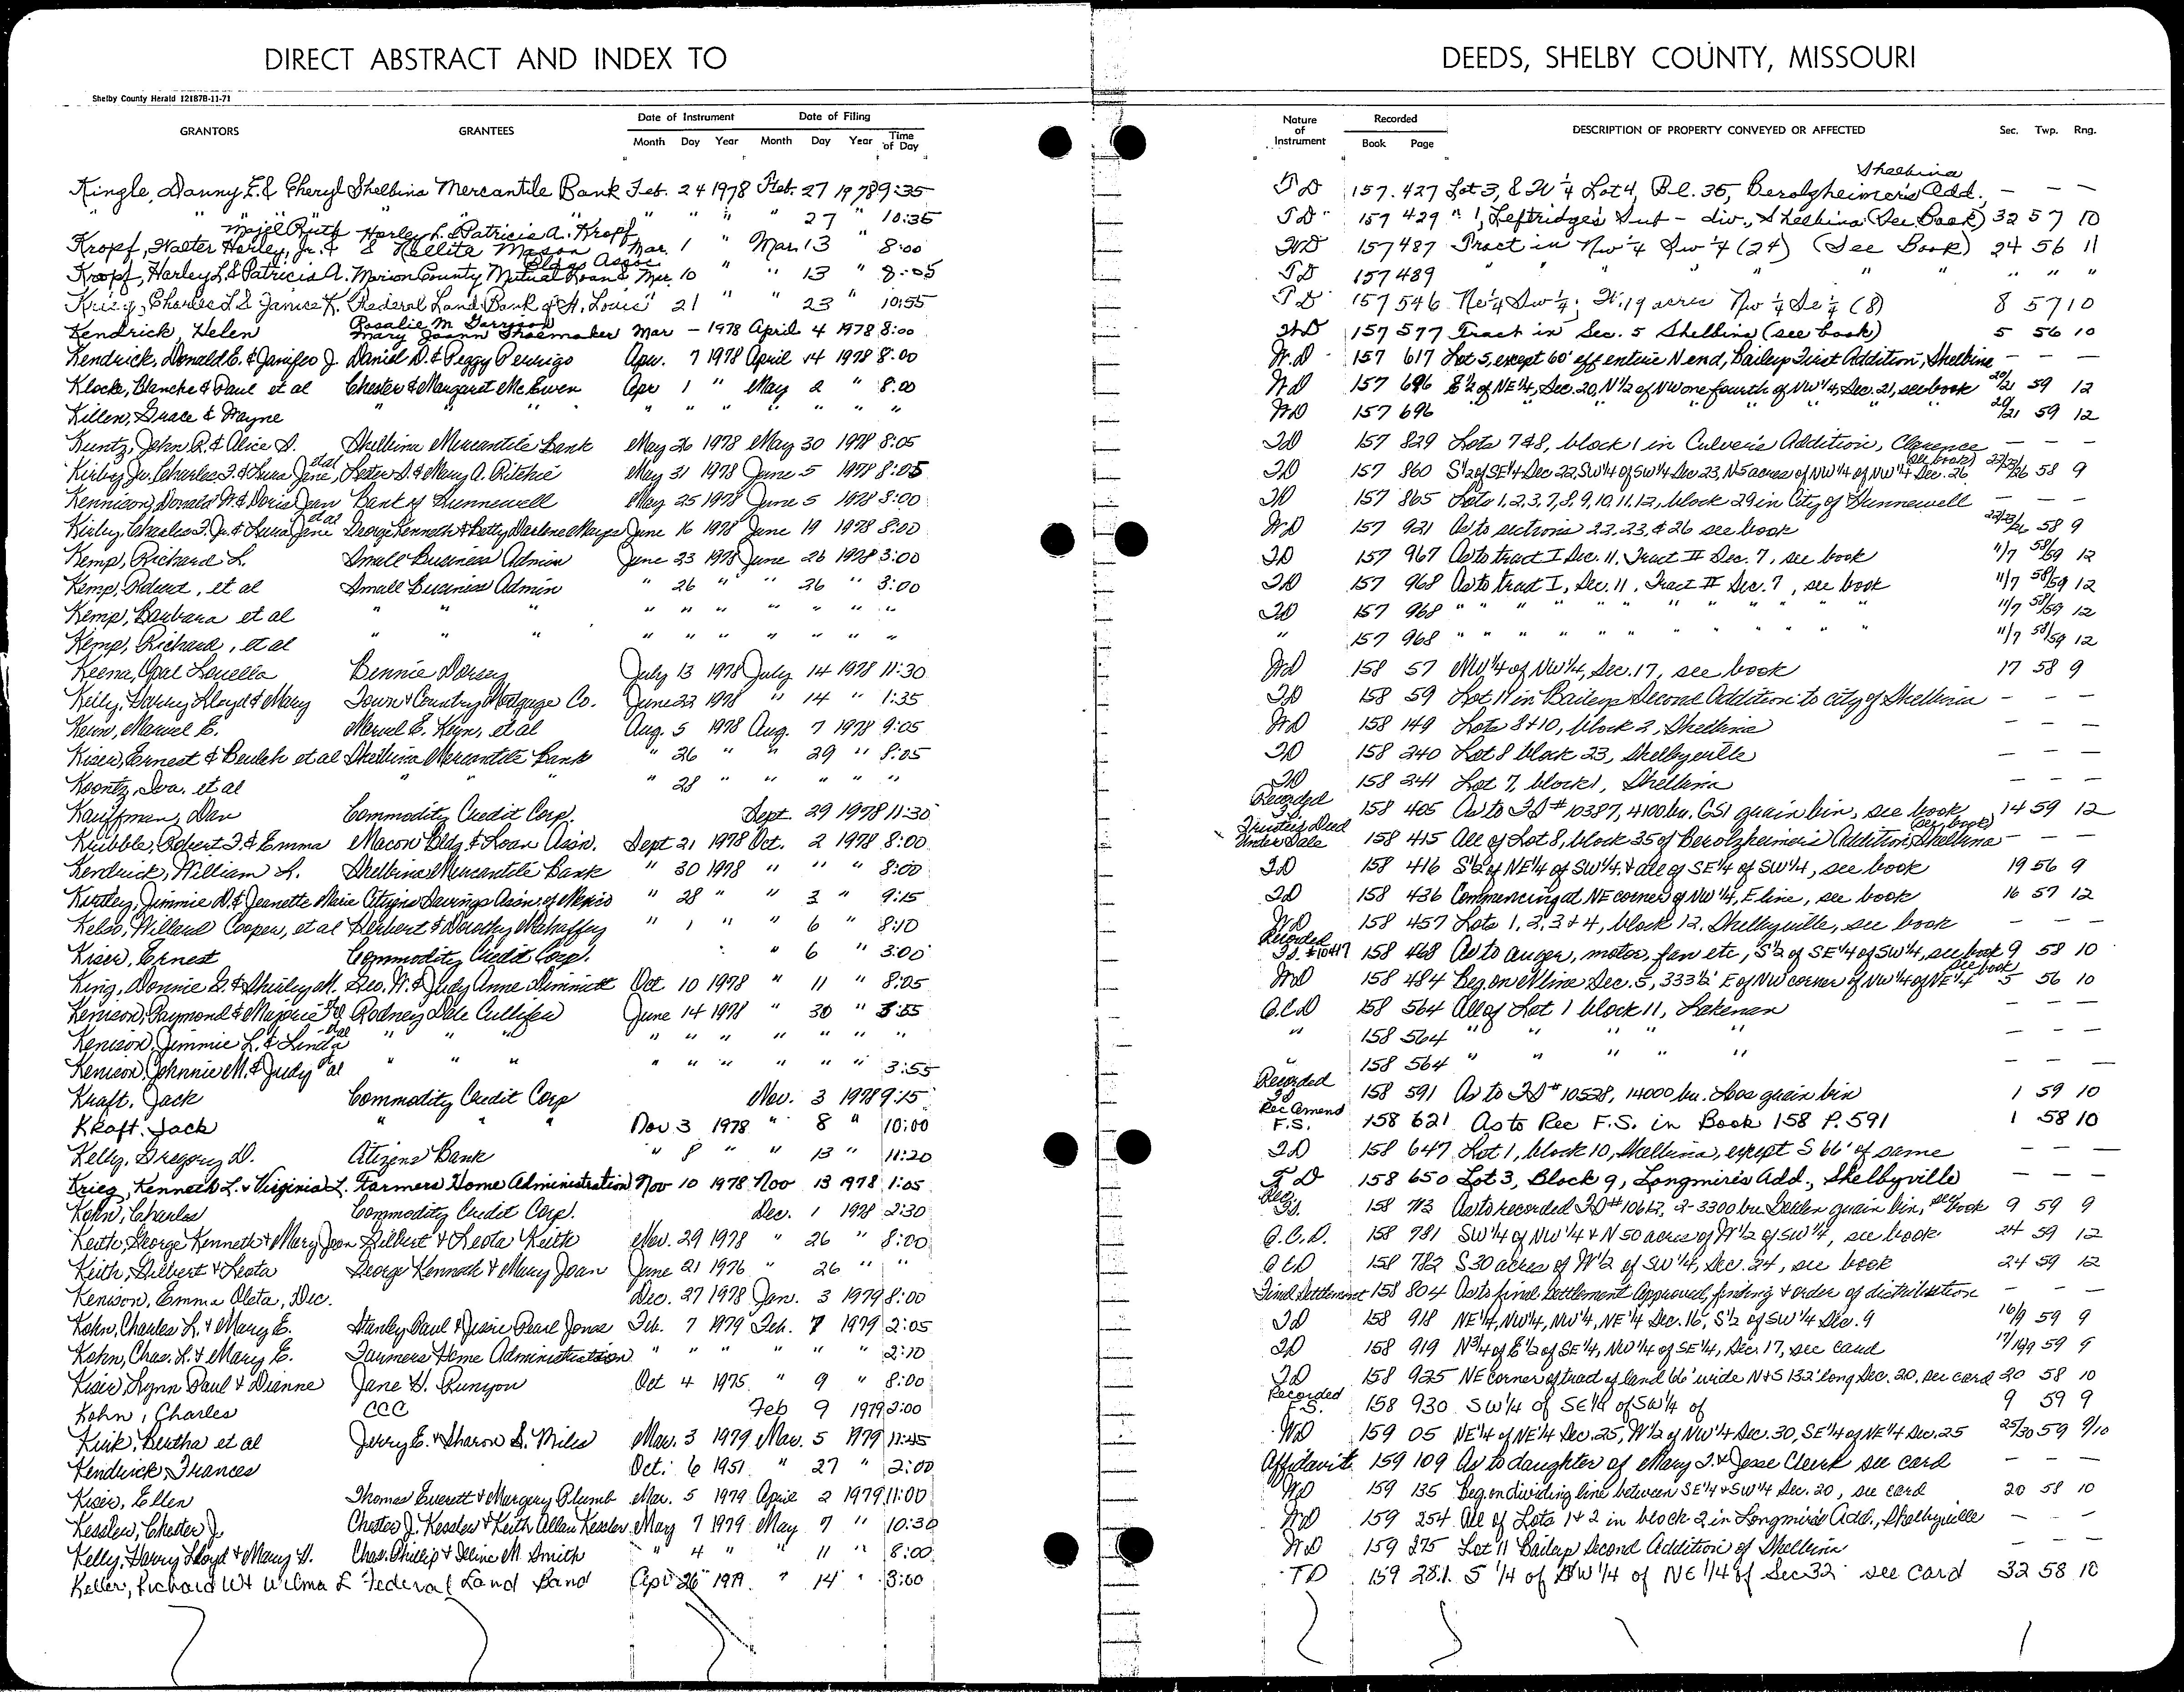 DIRECT ABSTRACT AND INDEX TO DEEDS, SHELBY COUNTY, MISSOURI
Shelby County Herald 12187B-11-71
GRANTORS GRANTEES Date of Instrument Month Day Year Date of Filing Month Day Year Time of Day Nature of Instrument Recorded Book Page DESCRIPTION OF PROPERTY CONVEYED OR AFFECTED Sec. Twp. Rng.
Kingle, Danny E. & Cheryl Shelbina Mercantile Bank Feb. 24 1978 Feb. 27 1978 9:35 TD 157 427 Lot 3, & W ¼ Lot 4, Bl. 35, Berolzheimer's Add. Shelbina — — —
" " " " " " " " " 27 " 10:35 TD 157 429 " 1, Leftridge's Sub-div., Shelbina (See Book) 32 57 10
Kropf, Walter Harley, Jr. & Majel Ruth Harley L. & Patricia A. Kropf & Mason Mar. 1 " Mar. 13 " 8:00 WD 157 487 Tract in NW ¼ SW ¼ (24) (See Book) 24 56 11
Kropf, Harley L. & Patricia A. Marion County Mutual Loan & Bldg Assoc Mar. 10 " " 13 " 8:05 TD 157 489 " " " " " " "
Krieg, Charles L. & Janice K. Federal Land Bank of St. Louis " 21 " " 23 " 10:55 TD 157 546 NE ¼ SW ¼; W. 19 acres NW ¼ SE ¼ (8) 8 57 10
Kendrick, Helen Rosalie M. Garrison Mary Joann Shoemaker Mar — 1978 April 4 1978 8:00 WD 157 577 Tract in Sec. 5 Shelbina (see book) 5 56 10
Kendrick, Donald E. & Janifer J. Daniel D. & Peggy Perrigo Apr. 7 1978 April 14 1978 8:00 W.D 157 617 Lot 5, except 60' off entire N end, Bailey First Addition, Shelbina — — —
Klocke, Blanche & Paul et al Chester & Margaret McEwen Apr 1 " May 2 " 8:00 WD 157 696 E½ of NE¼, Sec. 20, N½ of NW one fourth of NW¼, Sec. 21, see book 20/21 59 12
Killen, Grace & Wayne " " " " " " " " " " WD 157 696 " " " " " " 20/21 59 12
Kuntz, John R. & Alice S. Shelbina Mercantile Bank May 26 1978 May 30 1978 8:05 TD 157 829 Lots 7&8, block 1 in Culver's Addition, Clarence — — —
Kirby Jr., Charles F. & Lura Jane, et al Lester D. & Mary A. Ritchie May 31 1978 June 5 1978 8:05 TD 157 860 S½ of SE¼ Sec 22, SW¼ of SW¼ Sec. 23, N5 acres of NW¼ of NW¼ Sec. 26, (see book) 22/23/26 58 9
Kennison, Donald W. & Doris Jean Bank of Hunnewell May 25 1978 June 5 1978 8:00 TD 157 865 Lots 1,2,3,7,8,9,10,11,12, block 29 in City of Hunnewell — — —
Kirby, Charles F. Jr. & Lura Jane et al George Kenneth & Betty Darlene Mays June 16 1978 June 19 1978 8:00 WD 157 921 As to sections 22, 23, & 26 see book 22/23/26 58 9
Kemp, Richard L. Small Business Admin June 23 1978 June 26 1978 3:00 TD 157 967 As to tract I Sec. 11, Tract II Sec. 7, see book 11/7 58/59 12
Kemp, Robert, et al Small Business Admin " 26 " " 26 " 3:00 TD 157 968 As to tract I, Sec. 11, Tract II Sec. 7, see book 11/7 58/59 12
Kemp, Barbara et al " " " " " " " " " TD 157 968 " " " " " " " " " " 11/7 58/59 12
Kemp, Richard, et al " " " " " " " " " " 157 968 " " " " " " " " " " 11/7 58/59 12
Keena, Opal Louella Bennie Dorsey July 13 1978 July 14 1978 11:30 WD 158 57 NW¼ of NW¼, Sec. 17, see book 17 58 9
Kelly, Harry Lloyd & Mary Town & Country Mortgage Co. June 22 1978 " 14 " 1:35 TD 158 59 Lot 11 in Baileys Second Addition to city of Shelbina — — —
Kern, Marvel E. Marvel E. Kern, et al Aug. 5 1978 Aug. 7 1978 9:05 WD 158 149 Lots 8+10, block 2, Shelbina — — —
Kiser, Ernest & Beulah et al Shelbina Mercantile Bank " 26 " " 29 " 8:05 TD 158 240 Lot 8 block 23, Shelbyville — — —
Koontz, Iva. et al " " " 28 " " " " " TD 158 241 Lot 7, block 1, Shelbina — — —
Kauffman, Dan Commodity Credit Corp. Sept. 29 1978 11:30 Recorded 158 405 As to FS # 10387, 4100 bu. GSI grain bin, see book 14 59 12
Kribble, Robert F. & Emma Macon Bldg. & Loan Ass'n. Sept 21 1978 Oct. 2 1978 8:00 Trustees Deed Under Sale 158 415 All of Lot 8, block 35 of Berolzheimer's Addition, Shelbina (see book) — — —
Kendrick, William L. Shelbina Mercantile Bank " 30 1978 " " " 8:00 TD 158 416 S½ of NE¼ of SW¼, & all of SE¼ of SW¼, see book 19 56 9
Kirtley, Jimmie D. & Jeanette Marie Citizens Savings Ass'n. of Mexico " 28 " " 3 " 9:15 TD 158 436 Commencing at NE corner of NW¼, E line, see book 16 57 12
Kelso, Willard Cooper, et al Herbert & Dorothy Mahaffey " 1 " " 6 " 8:10 WD 158 457 Lots 1, 2, 3 + 4, block 12, Shelbyville, see book — — —
Kiser, Ernest Commodity Credit Corp. " 6 " 3:00 Recorded FS. #10417 158 468 As to auger, motor, fan etc, S½ of SE¼ of SW¼, see book 9 58 10
King, Donnie G. & Shirley M. Geo. W. & Judy Anne Dimmitt Oct 10 1978 " 11 " 8:05 WD 158 484 Beg. on N line Sec. 5, 333½' E of NW corner of NW¼ of NE¼ see book 5 56 10
Kenison, Raymond & Marjorie et al Rodney Dale Cullifer June 14 1978 " 30 " 3:55 Q.C.D 158 564 All of Lot 1 block 11, Lakenan — — —
Kenison, Jimmie L. & Linda et al " " " " " " " " " " " 158 564 " " " " " — — —
Kenison, Johnnie M. & Judy et al " " " " " " " " " 3:55 " 158 564 " " " " " — — —
Kraft, Jack Commodity Credit Corp Nov. 3 1978 9:15 Recorded FS 158 591 As to FS # 10528, 14000 bu. grain bin 1 59 10
Kraft, Jack " " " Nov 3 1978 " 8 " 10:00 Rec Amend F.S. 158 621 As to Rec F.S. in Book 158 P. 591 1 58 10
Kelly, Gregory D. Citizens Bank " 8 " " 13 " 11:20 TD 158 647 Lot 1, block 10, Shelbina, except S 66' of same — — —
Krieg, Kenneth L. & Virginia L. Farmers Home Administration Nov 10 1978 Nov 13 1978 1:05 T D 158 650 Lot 3, Block 9, Longmire's Add., Shelbyville — — —
Kohn, Charles Commodity Credit Corp. Dec. 1 1978 2:30 Rec. FS. 158 713 As to recorded FS #10612, 2-3300 bu grain bin, see book 9 59 9
Keith, George Kenneth & Mary Joan Gilbert & Leota Keith Nov. 29 1978 " 26 " 8:00 Q.C.D. 158 781 SW¼ of NW¼ & N 50 acres of W½ of SW¼, see book 24 59 12
Keith, Gilbert & Leota George Kenneth & Mary Joan June 21 1976 " 26 " " QCD 158 782 S 30 acres of W½ of SW¼, Sec. 24, see book 24 59 12
Kenison, Emma Oleta, Dec. Dec. 27 1978 Jan. 3 1979 8:00 Final Settlement 158 804 As to final Settlement Approved, finding & order of distribution — — —
Kohn, Charles L. & Mary E. Stanley Paul & Jessie Pearl Jones Feb. 7 1979 Feb. 7 1979 2:05 TD 158 918 NE¼, NW¼, NW¼, NE¼ Sec. 16, S½ of SW¼ Sec. 9 16/9 59 9
Kohn, Chas. L. & Mary E. Farmers Home Administration " " " " " " 2:10 TD 158 919 N¾ of E½ of SE¼, NW¼ of SE¼, Sec. 17, see card 17/16/9 59 9
Kiser, Lynn Paul & Dianne Jane H. Runyon Oct 4 1975 " 9 " 8:00 TD 158 925 NE corner of trad of land 66' wide N+S 132' long Sec. 20, see card 20 58 10
Kohn, Charles CCC Feb 9 1979 2:00 Recorded F.S. 158 930 SW¼ of SE¼ of SW¼ of 9 59 9
Kirk, Bertha et al Jerry E. & Sharon S. Miles Mar. 3 1979 Mar. 5 1979 11:45 WD 159 05 NE¼ of NE¼ Sec. 25, W½ of NW¼ Sec. 30, SE¼ of NE¼ Sec. 25 25/30 59 9/10
Kendrick, Frances Oct. 6 1951 " 27 " 2:00 Affidavit 159 109 As to daughter of Mary J. & Jesse Clerk see card — — —
Kiser, Ellen Thomas Everett & Margery Plumb Mar. 5 1979 April 2 1979 11:00 WD 159 135 Beg. on dividing line between SE¼ & SW¼ Sec. 20, see card 20 58 10
Kessler, Chester J. Chester J. Kessler & Keith Allan Kessler May 7 1979 May 7 " 10:30 WD 159 254 All of Lots 1+2 in block 2 in Longmire's Add., Shelbyville — — —
Kelly, Harry Lloyd & Mary H. Chas. Phillip & Iline M. Smith " 4 " " 11 " 8:00 WD 159 275 Lot 11 Baileys Second Addition of Shelbina — — —
Keller, Richard W & Wilma L Federal Land Band Apr 26 1979 " 14 " 3:00 TD 159 281 S ¼ of SW ¼ of NE 1/4 of Sec 32 see card 32 58 10